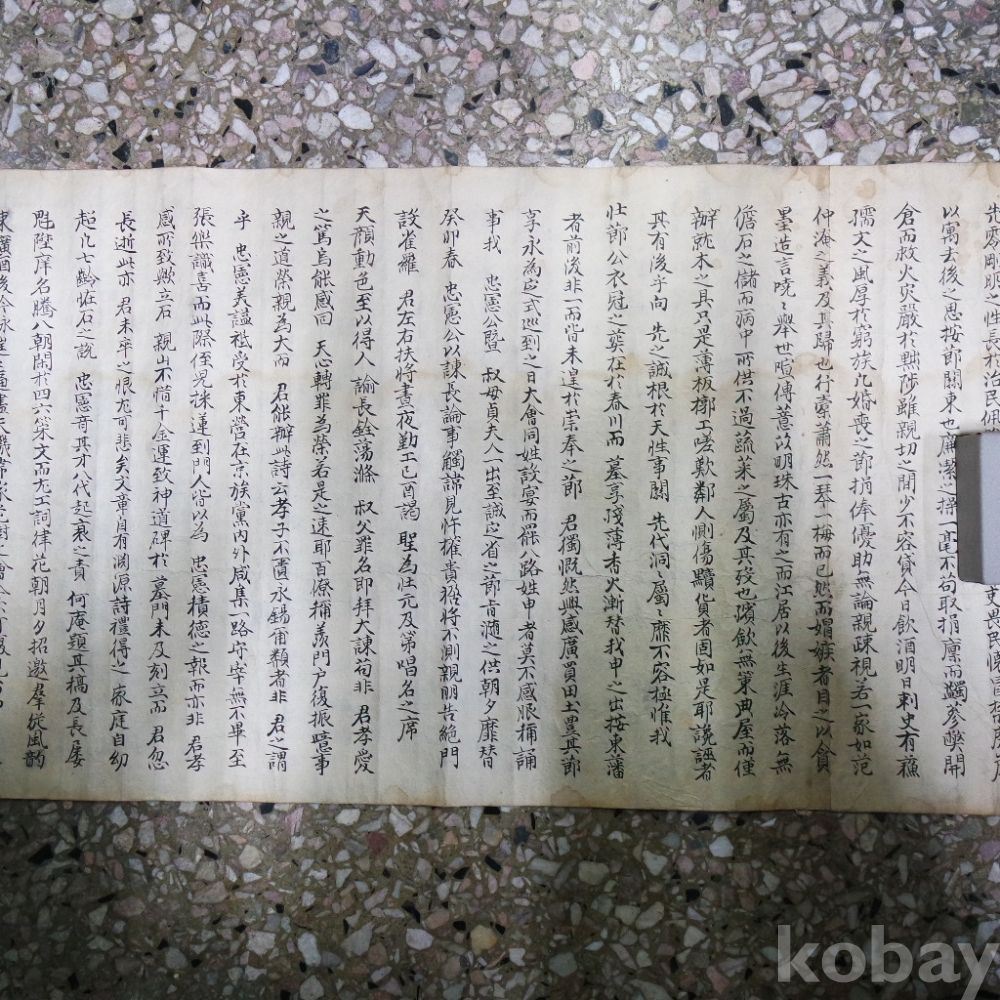 以寓去後之思按節關東也廉潔之操一毫不苟取捐廩而蠲蔘獘開
倉而救火灾嚴於黜陟雖親切之間少不容貸今日飮酒明日刺史有蘓
孺文之風厚於窮族凡婚喪之節捐俸優助無論親疎視若一家如范
仲淹之義及其歸也行橐蕭然一琴一梅而已然而媢嫉者目之以貪
墨造言嘵〻擧世喧傳薏苡明珠古亦有之而江居以後生涯冷落無
儋石之儲而病中所供不過䟽菜之屬及其歿也殯斂無策典屋而僅
辦就木之具只是薄板槨工嗟歎鄰人惻傷黷貨者固如是耶讒誣者
其有後乎向 先之誠根於天性事關 先代洞〻屬〻靡不容極惟我
壯節公衣冠之葬在於春川而 墓享殘薄香火漸替我申之出按東藩
者前後非一而皆未遑於崇奉之節 君獨慨然興感廣買田土豊其節
享永爲定式巡到之日大會同姓設宴而罷八路姓申者莫不感服稱誦
事我 忠憲公曁 叔母貞夫人一出至誠定省之節㳽瀡之供朝夕靡替
癸卯春 忠憲公以諫長論事觸諱見忤權貴禍將不測親朋告絶門
設雀羅 君左右扶將晝夜勤工已酉謁 聖爲壯元及第唱名之席
天顔動色至以得人 諭長銓蕩滌 叔父罪名即拜大諫苟非 君孝愛
之篤烏能感回 天心轉罪爲榮若是之速耶百僚稱羨門戶復振噫事
親之道榮親爲大而 君能辦此詩云孝子不匱永錫爾類者非 君之謂
乎 忠憲美謚祗受於東營在京族黨內外咸集一路守宰無不畢至
張樂識喜而此際侄兒抹蓮到門人皆以爲 忠憲積德之報而亦非 君孝
感所致歟立石 親山不惜千金運致神道碑於墓門未及刻立而 君忽
長逝此亦 君未卒之恨尤可悲矣文章自有淵源詩禮得之 家庭自幼
超凡七齡恠石之說 忠憲奇其才八代起衰之責 何庵題其稿及長屢
魁陞庠名騰八朝閑於四六策文而尤工詞律花朝月夕招邀羣從風韵